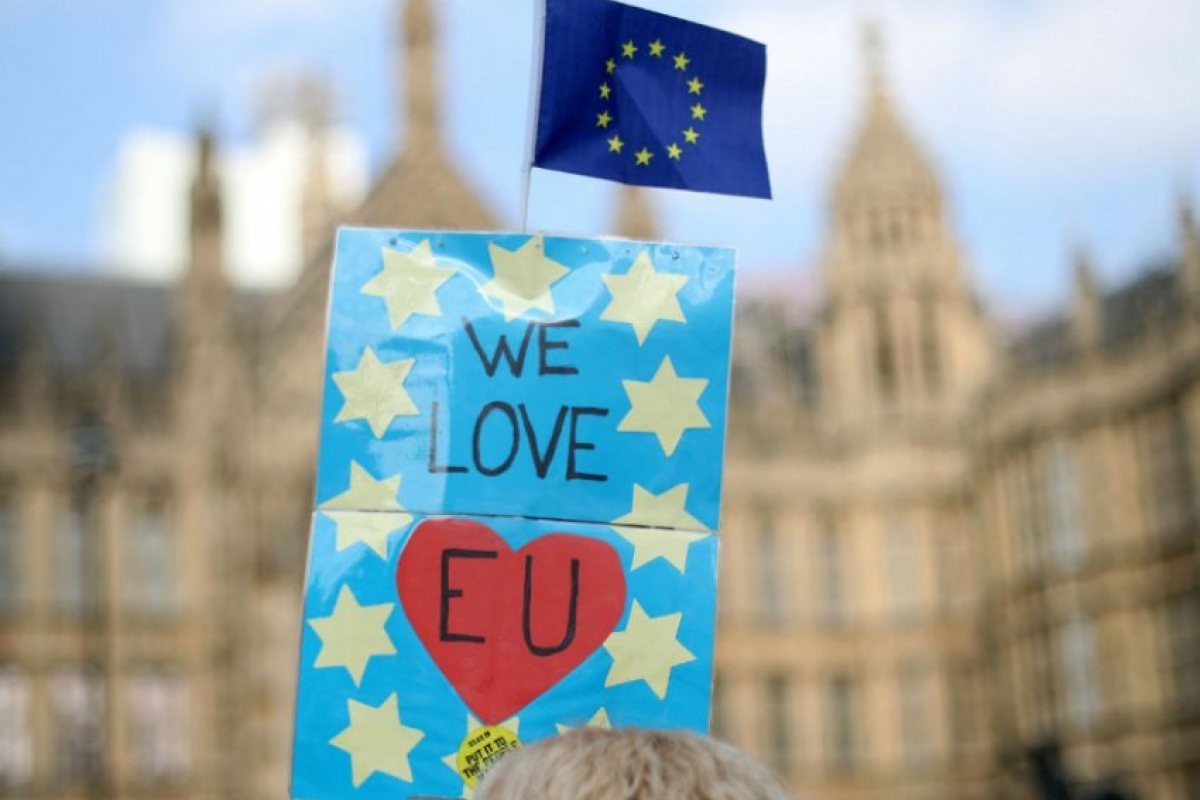 WE
LOVE
EU
PUT IT TO
THE PEOPLE